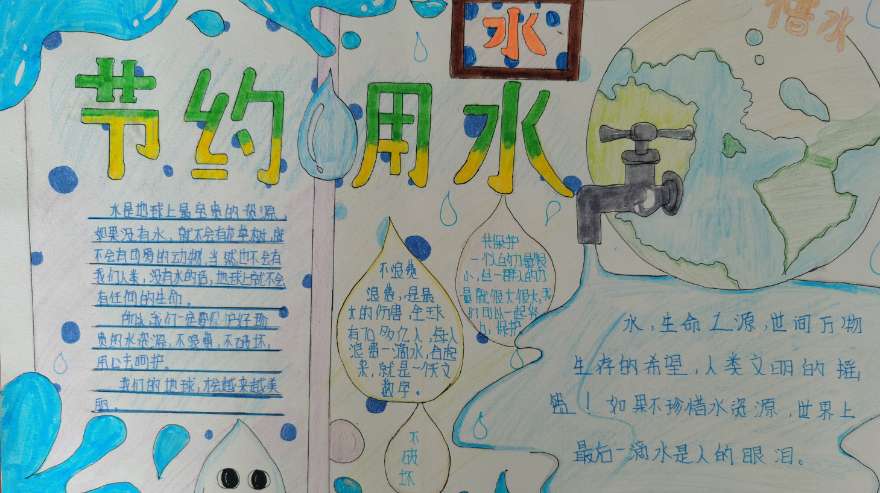 节约用水
水
惜水
水是地球上最宝贵的资源。
如果没有水，就不会有花草树，就
不会有可爱的动物，当然也不会有
我们人类，没有水的话，地球上就不会
有任何的生命。
所以我们一定要保护好珍
贵的水资源，不浪费，不破坏，
用心去呵护。
我们的地球，才会越来越美
丽。
不浪费
浪费，是最
大的伤害，全球
有70多亿人，每人
浪费一滴水，合起
来，就是一个天文
数字。
共保护
一个人的力量很
小，但一群人的力
量就很大很大，我
们可以一起努
力，保护
不
破
坏
水，生命之源，世间万物
生存的希望，人类文明的摇
篮！如果不珍惜水资源，世界上
最后一滴水是人的眼泪。